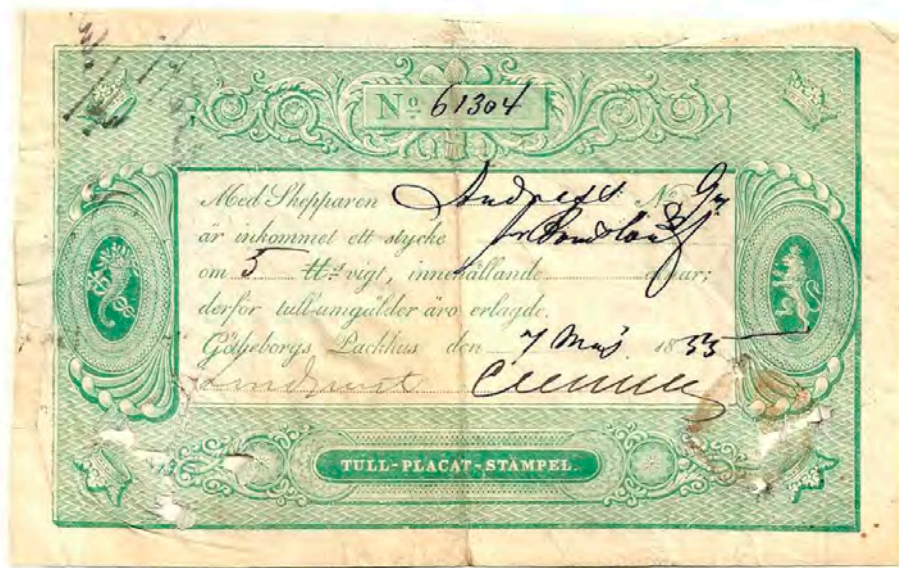 No. 61304
Med Skepparen Andreas
är inkommet ett stycke
om 5 ℔.s vigt, innehållande alnar;
derför tull-umgälder äro erlagde.
Götheborgs Packhus den 7 Maj 1855
Lindquist
TULL-PLACAT-STÄMPEL.